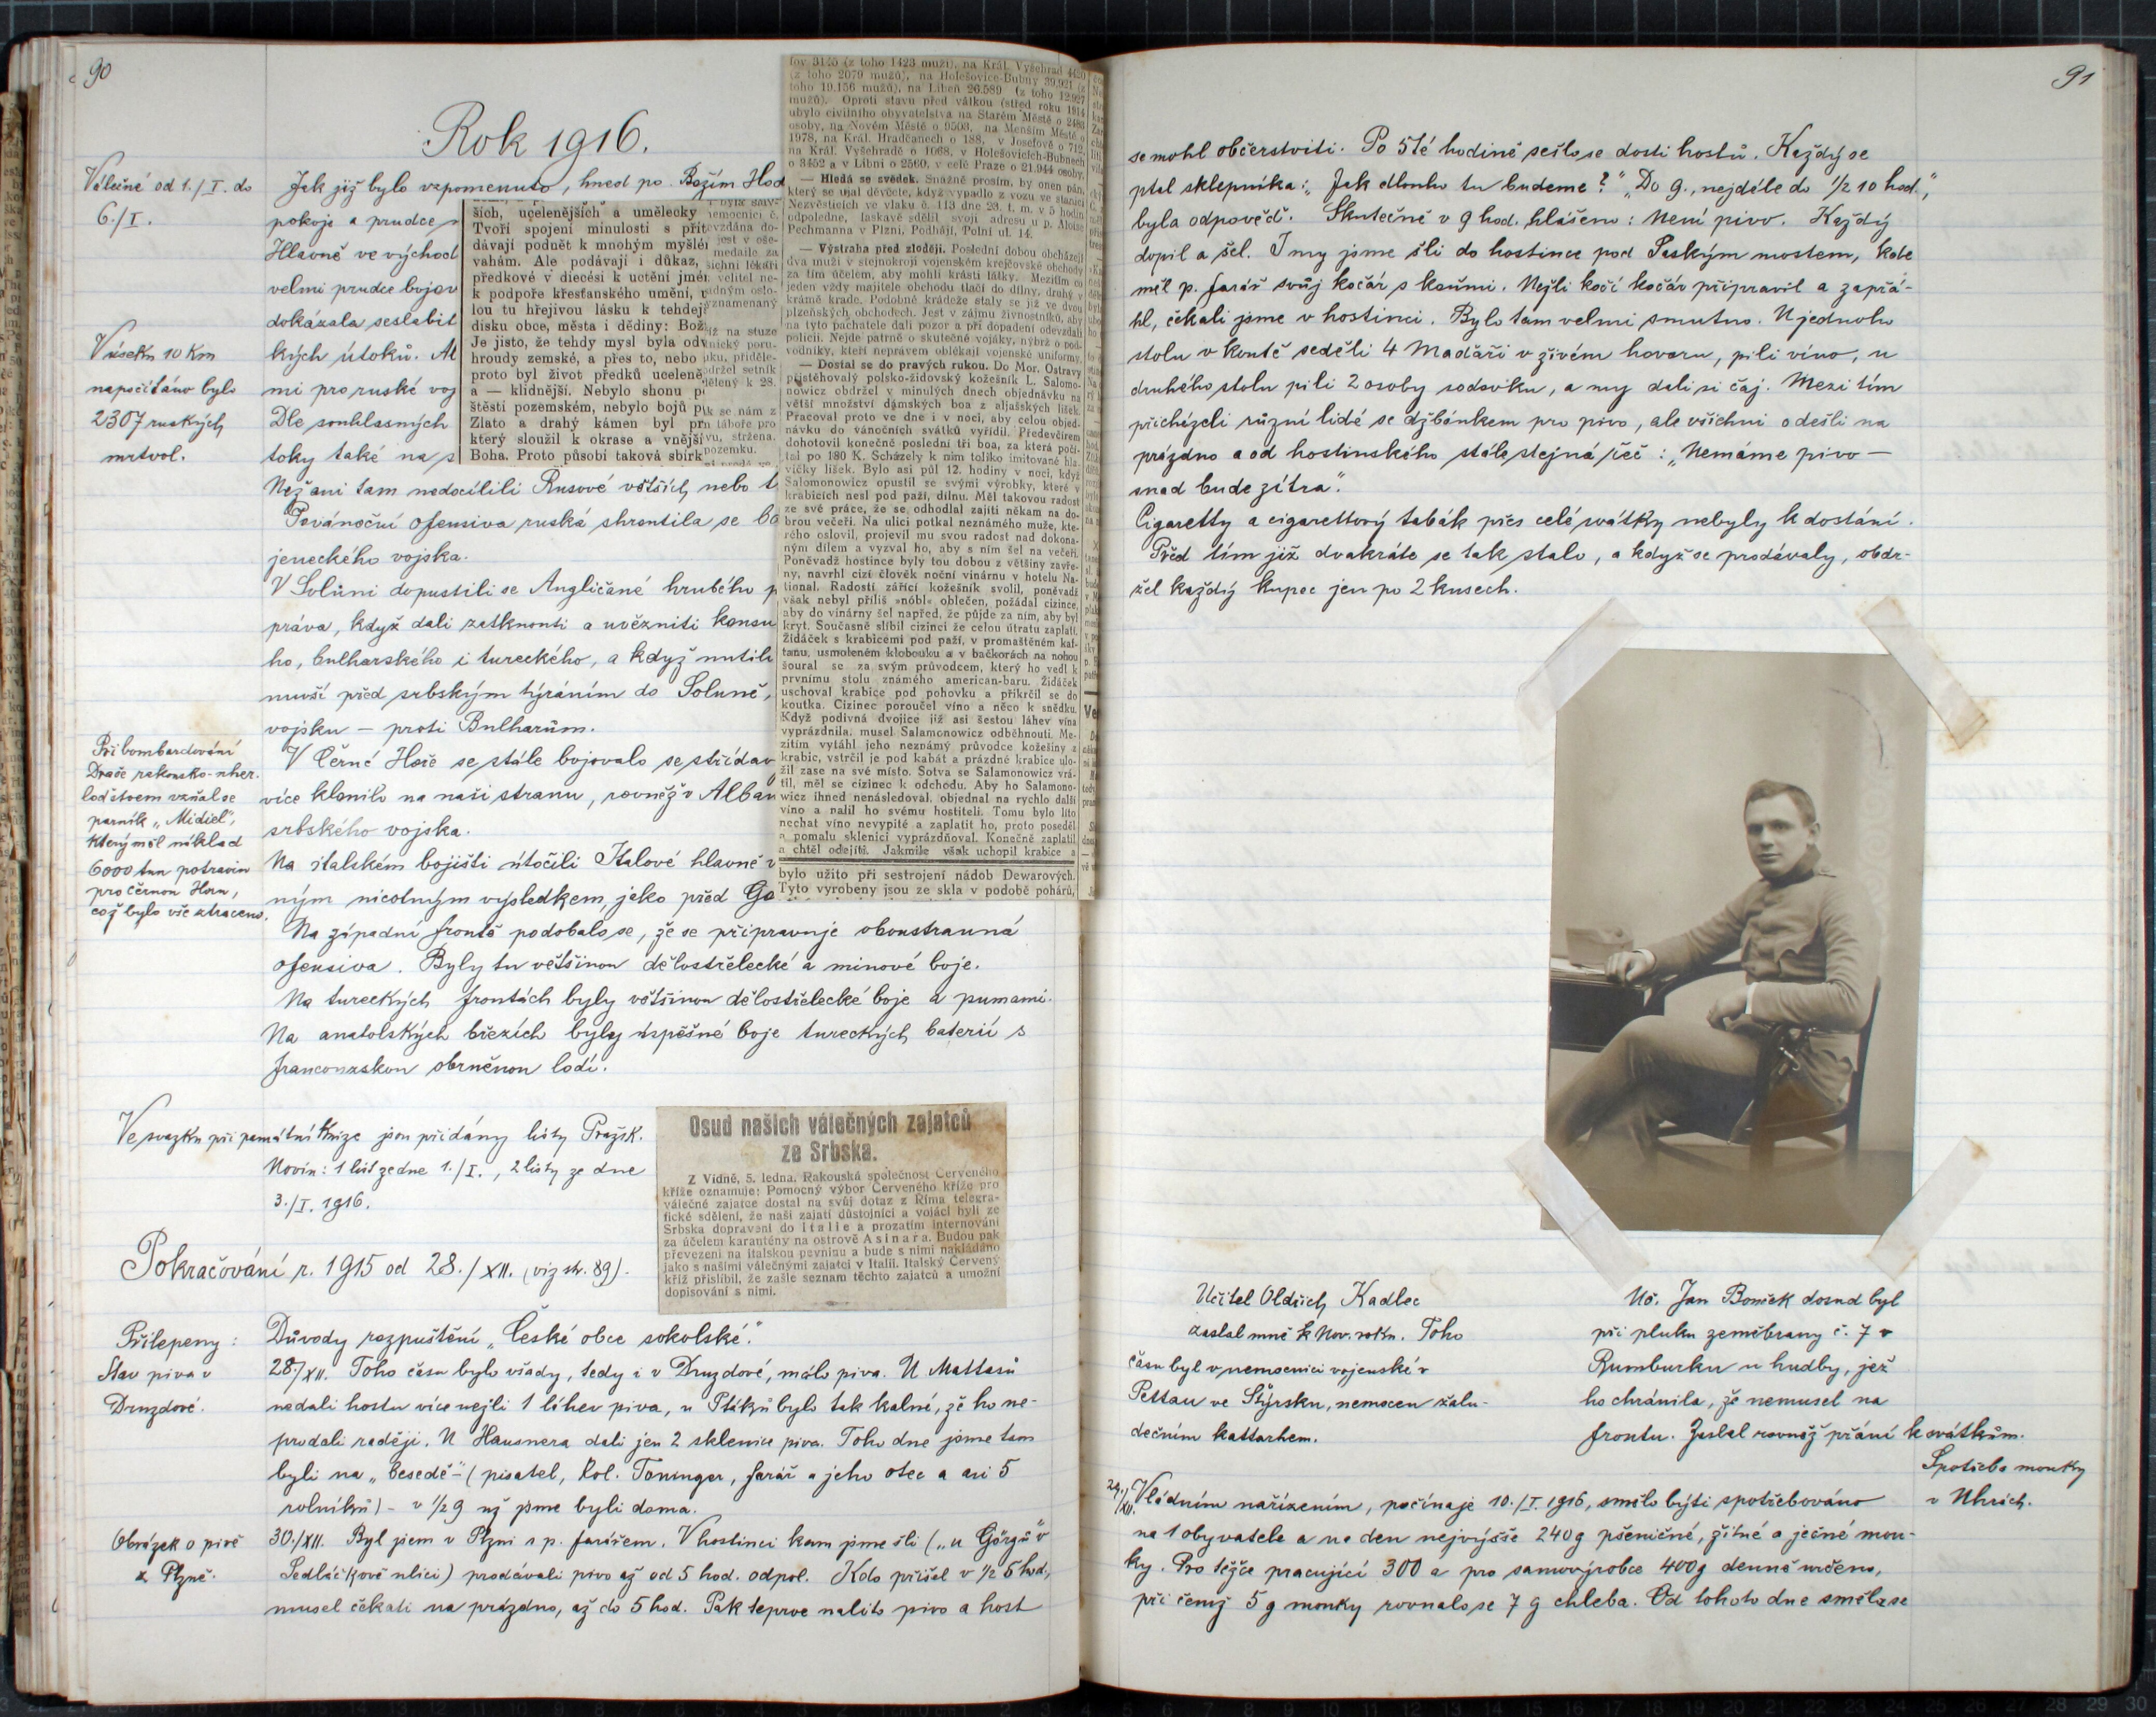 90
Rok 1916.
Válečné od 1./I. do
6./I.
Jak již bylo vzpomenuto, hned po Božím Hod
pokoje a prudce
Hlavně ve východ
velmi prudce bojov
dokázala seslabit
kých útoků. Al
mi pro ruské voj
Dle souhlasných
toky také na s
Než ani tam nedocílili Rusové větších nebo t
Povánoční ofensiva ruská shroutila se
jeneckého vojska.
V Solůni dopustili se Angličané hrubého p
práva, když dali zatknouti a uvězniti konsu
ho, bulharského i tureckého, a když nutili
musí před srbským týráním do Soluně,
vojsku – proti Bulharům.
V Černé Hoře se stále bojovalo se střídav
více klonilo na naši stranu, rovněž v Alban
srbského vojska.
Na italském bojišti útočili Italové hlavně v
ným nicotným výsledkem, jako před Go
Na západní frontě podobalo se, že se připravuje oboustranná
ofensiva. Byly tu většinou dělostřelecké a minové boje.
Na tureckých frontách byly většinou dělostřelecké boje a pumami.
Na anatolských březích byly úspěšné boje tureckých baterií s
francouzskou obrněnou lodí.
V úseku 10 km
napočítáno bylo
2307 ruských
mrtvol.
Při bombardování
Drače rakousko-uher.
loďstvem vzňal se
parník „Midiel",
který měl náklad
6000 tun potravin
pro Černou Horu,
což bylo vše ztraceno.
ších, ucelenějších a umělecky
Tvoří spojení minulosti s přít
dávají podnět k mnohým myšlen
vahám. Ale podávají i důkaz,
předkové v diecési k uctění jmén
k podpoře křesťanského umění,
lou tu hřejivou lásku k tehdejš
disku obce, města i dědiny: Bož
Je jisto, že tehdy mysl byla odv
hroudy zemské, a přes to, nebo
proto byl život předků uceleně
a — klidnější. Nebylo shonu p
štěstí pozemském, nebylo bojů p
Zlato a drahý kámen byl pr
který sloužil k okrase a vnější
Boha. Proto působí taková sbírk
emocnici č.
evzdána do-
jest v oše-
medaile za
sichni lékáři
velitel ne-
dným oslo-
yznamenaný
íž na stuze
nický poru-
uku, přiděle-
držel setník
dělený k 28.
k se nám z
táboře pro
vu, stržena.
pozemku.
tov 3145 (z toho 1423 muži), na Král. Vyšehrad 4420
(z toho 2079 mužů), na Holešovice-Bubny 39.921 (z
toho 19.156 mužů), na Libeň 26.589 (z toho 12.927
mužů). Oproti stavu před válkou (střed roku 1914
ubylo civilního obyvatelstva na Starém Městě o 2483
osoby, na Novém Městě o 9503, na Menším Městě o
1978, na Král. Hradčanech o 188, v Josefově o 712,
na Král. Vyšehradě o 1068, v Holešovicích-Bubnech
o 3452 a v Libni o 2560, v celé Praze o 21.944 osoby.
— Hledá se svědek. Snažně prosím, by onen pán,
který se ujal děvčete, když vypadlo z vozu ve stanici
Nezvěsticích ve vlaku č. 113 dne 23. t. m. v 5 hodin
odpoledne, laskavě sdělil svoji adresu u p. Aloise
Pechmanna v Plzni, Podhájí, Polní ul. 14.
— Výstraha před zloději. Poslední dobou obcházejí
dva muži v stejnokroji vojenském krejčovské obchody
za tím účelem, aby mohli krásti látky. Mezitím co
jeden vždy majitele obchodu tlačí do dílny, druhý v
krámě krade. Podobné krádeže staly se již ve dvou
plzeňských obchodech. Jest v zájmu živnostníků, aby
na tyto pachatele dali pozor a při dopadení odevzdali
policii. Nejde patrně o skutečné vojáky, nýbrž o pod-
vodníky, kteří neprávem oblékají vojenské uniformy.
— Dostal se do pravých rukou. Do Mor. Ostravy
přistěhovalý polsko-židovský kožešník L. Salomo-
nowicz obdržel v minulých dnech objednávku na
větší množství dámských boa z aljašských lišek.
Pracoval proto ve dne i v noci, aby celou objed-
návku do vánočních svátků vyřídil. Předevčírem
dohotovil konečně poslední tři boa, za která počí-
tal po 180 K. Scházely k nim toliko imitované hla-
vičky lišek. Bylo asi půl 12. hodiny v noci, když
Salomonowicz opustil se svými výrobky, které v
krabicích nesl pod paží, dílnu. Měl takovou radost
ze své práce, že se odhodlal zajíti někam na do-
brou večeři. Na ulici potkal neznámého muže, kte-
rého oslovil, projevil mu svou radost nad dokona-
ným dílem a vyzval ho, aby s ním šel na večeři.
Poněvadž hostince byly tou dobou z většiny zavře-
ny, navrhl cizí člověk noční vinárnu v hotelu Na-
tional. Radostí zářící kožešník svolil, poněvadž
však nebyl příliš »nóbl« oblečen, požádal cizince,
aby do vinárny šel napřed, že půjde za ním, aby byl
kryt. Současně slíbil cizinci že celou útratu zaplatí.
Židáček s krabicemi pod paží, v promaštěném kaf-
tanu, usmoleném klobouku a v bačkorách na nohou
šoural se za svým průvodcem, který ho vedl k
prvnímu stolu známého american-baru. Židáček
uschoval krabice pod pohovku a přikrčil se do
koutka. Cizinec poroučel víno a něco k snědku.
Když podivná dvojice již asi šestou láhev vína
vyprázdnila, musel Salamonowicz odběhnouti. Me-
zitím vytáhl jeho neznámý průvodce kožešiny z
krabic, vstrčil je pod kabát a prázdné krabice ulo-
žil zase na své místo. Sotva se Salamonowicz vrá-
til, měl se cizinec k odchodu. Aby ho Salamono-
wicz ihned nenásledoval, objednal na rychlo další
víno a nalil ho svému hostiteli. Tomu bylo líto
nechat víno nevypité a zaplatit ho, proto poseděl
a pomalu sklenici vyprázdňoval. Konečně zaplatil
a chtěl odejíti. Jakmile však uchopil krabice a
bylo užito při sestrojení nádob Dewarových.
Tyto vyrobeny jsou ze skla v podobě pohárů,
Ve svazku při památní knize jsou přidány listy Pražsk.
Novin: 1 list ze dne 1./I., 2 listy ze dne
3./I. 1916.
Osud našich válečných zajatců
ze Srbska.
Z Vídně, 5. ledna. Rakouská společnost Červeného
kříže oznamuje: Pomocný výbor Červeného kříže pro
válečné zajatce dostal na svůj dotaz z Říma telegra-
fické sdělení, že naši zajatí důstojníci a vojáci byli ze
Srbska dopraveni do Italie a prozatím internováni
za účelem karantény na ostrově Asinara. Budou pak
převezeni na italskou pevninu a bude s nimi nakládáno
jako s našimi válečnými zajatci v Italii. Italský Červený
kříž přislíbil, že zašle seznam těchto zajatců a umožní
dopisování s nimi.
Pokračování r. 1915 od 28./XII. (viz str. 89).
Přilepeny: Důvody rozpuštění „České obce sokolské".
Stav piva v
Druzdové.
28./XII. Toho času bylo všady, tedy i v Druzdové, málo piva. U Mattasů
nedali hostu více nežli 1 láhev piva, u Ptáků bylo tak kalné, že ho ne-
prodali raději. U Hausnera dali jen 2 sklenice piva. Toho dne jsme tam
byli na „besedě" (pisatel, kol. Toninger, farář a jeho otec a asi 5
rolníků) – v 1/2 9 už jsme byli doma.
Obrázek o pivě
z Plzně.
30./XII. Byl jsem v Plzni s p. farářem. V hostinci kam jsme šli („u Görgů" v
Sedláčkově ulici) prodávali pivo až od 5 hod. odpol. Kdo přišel v 1/2 5 hod.,
musel čekati na prázdno, až do 5 hod. Pak teprve nalito pivo a host
91
se mohl občerstviti. Po 5té hodině sešlo se dosti hostů. Každý se
ptal sklepníka: „Jak dlouho tu budeme?" „Do 9., nejdéle do 1/2 10 hod.",
byla odpověď. Skutečně v 9 hod. hlášeno: Není pivo. Každý
dopil a šel. I my jsme šli do hostince pod Saským mostem, kde
měl p. farář svůj kočár s koňmi. Nežli kočí kočár připravil a zapřá-
hl, čekali jsme v hostinci. Bylo tam velmi smutno. U jednoho
stolu v koutě seděli 4 Maďaři v živém hovoru, pili víno, u
druhého stolu pili 2 osoby sodovku, a my dali si čaj. Mezi tím
přicházeli různí lidé se džbánkem pro pivo, ale všichni odešli na
prázdno a od hostinského stále stejná řeč: „Nemáme pivo —
snad bude zítra".
Cigaretty a cigarettový tabák přes celé svátky nebyly k dostání.
Před tím již dvakráte se tak stalo, a když se prodávaly, obdr-
žel každý kupec jen po 2 kusech.
Učitel Oldřich Kadlec
zaslal mně k Nov. roku. Toho
času byl v nemocnici vojenské v
Pettau ve Štýrsku, nemocen žalu-
dečním kattarhem.
Uč. Jan Boníček dosud byl
při pluku zeměbrany č. 7 v
Rumburku u hudby, jež
ho chránila, že nemusel na
frontu. Zaslal rovněž přání k svátkům.
Spotřeba mouky
v Uhrách.
29./XII. Vládním nařízením, počínaje 10./I. 1916, smělo býti spotřebováno
na 1 obyvatele a na den nejvýše 240 g pšeničné, žitné a ječné mou-
ky. Pro těžce pracující 300 a pro samovýrobce 400 g denně určeno,
při čemž 5 g mouky rovnalo se 7 g chleba. Od tohoto dne smělo se